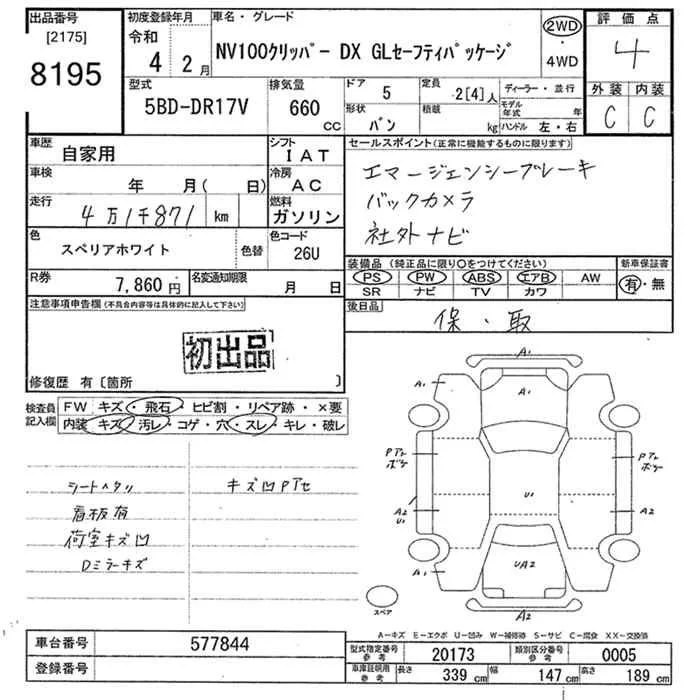 出品番号
[2175]
8195
初度登録年月
令和
4 2月
車名・グレード
NV100クリッパー DX GLセーフティパッケージ
2WD
・
4WD
評価点
4
外装 内装
C C
型式
5BD-DR17V
排気量
660
CC
ドア
5
形状
バン
定員
2[4]人
積載
kg
ディーラー・並行
モデル年式 年
ハンドル 左・右
車歴
自家用
シフト
IAT
車検
年 月( 日)
冷房
AC
走行
4万1千871 km
燃料
ガソリン
色
スペリアホワイト
色替
色コード
26U
R券
7,860円
名変通知期限
月 日
セールスポイント(正常に機能するものに限ります)
エマージェンシーブレーキ
バックカメラ
社外ナビ
装備品(純正品に限り○をつけてください)
PS PW ABS エアB AW
SR ナビ TV カワ
新車保証書
有・無
後日品
保・取
注意事項申告欄(不具合内容等は具体的に記入して下さい)
初出品
修復歴 有〔箇所 〕
検査員記入欄
FW キズ・飛石・ヒビ割・リペア跡・×要
内装 キズ・汚レ・コゲ・穴・スレ・キレ・破レ
シートヘタリ
看板有
荷室キズ凹
Dミラーキズ
キズ凹Pアセ
A1
A1
A1
Pアト
ボケ
Pアト
ボケ
A2
U1
U1
A2
A1
UA2
A1
A2
スペア
A-キズ E-エクボ U-凹み W-補修跡 S-サビ C-腐食 XX-交換済
車台番号 577844
登録番号
型式指定番号
参考
20173
類別区分番号
参考
0005
車庫証明用
参考
長さ 339 cm 幅 147 cm 高さ 189 cm